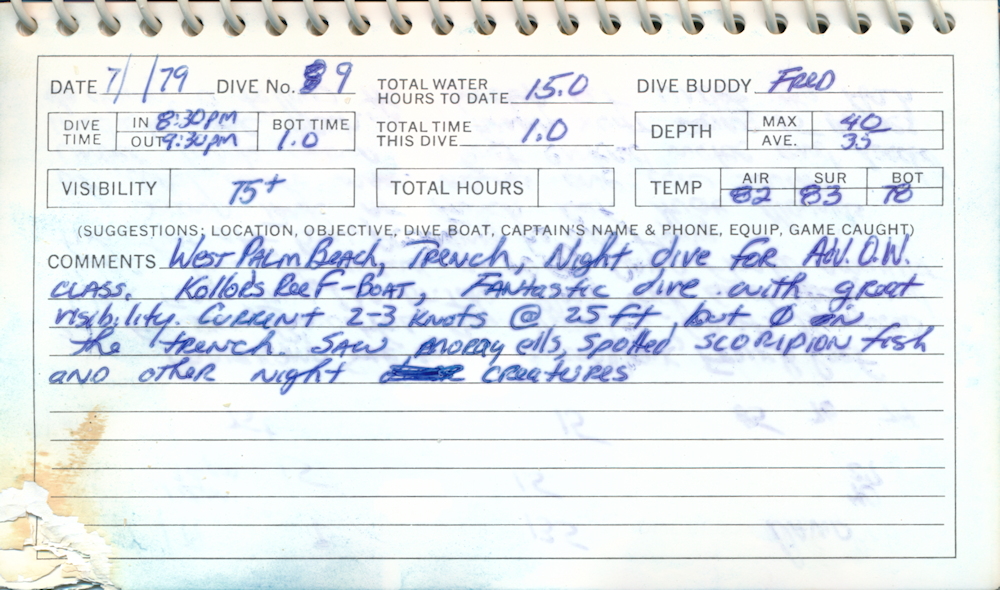 DATE 7/ /79 DIVE No. 9 TOTAL WATER HOURS TO DATE 15.0 DIVE BUDDY FRED
DIVE TIME IN 8:30pm OUT 9:30pm BOT TIME 1.0 TOTAL TIME THIS DIVE 1.0 DEPTH MAX 40 AVE. 35
VISIBILITY 75+ TOTAL HOURS TEMP AIR 82 SUR 83 BOT 78
(SUGGESTIONS; LOCATION, OBJECTIVE, DIVE BOAT, CAPTAIN'S NAME & PHONE, EQUIP, GAME CAUGHT)
COMMENTS WEST PALM BEACH, TRENCH, Night dive FOR ADV. O.W.
CLASS. Kollors REEF-BOAT, FANtastic dive with great
visibility. CURRENT 2-3 KNOTS @ 25 ft but 0 in
the trench. SAW moray ells, spotted SCORIPION fish
AND other night creatures